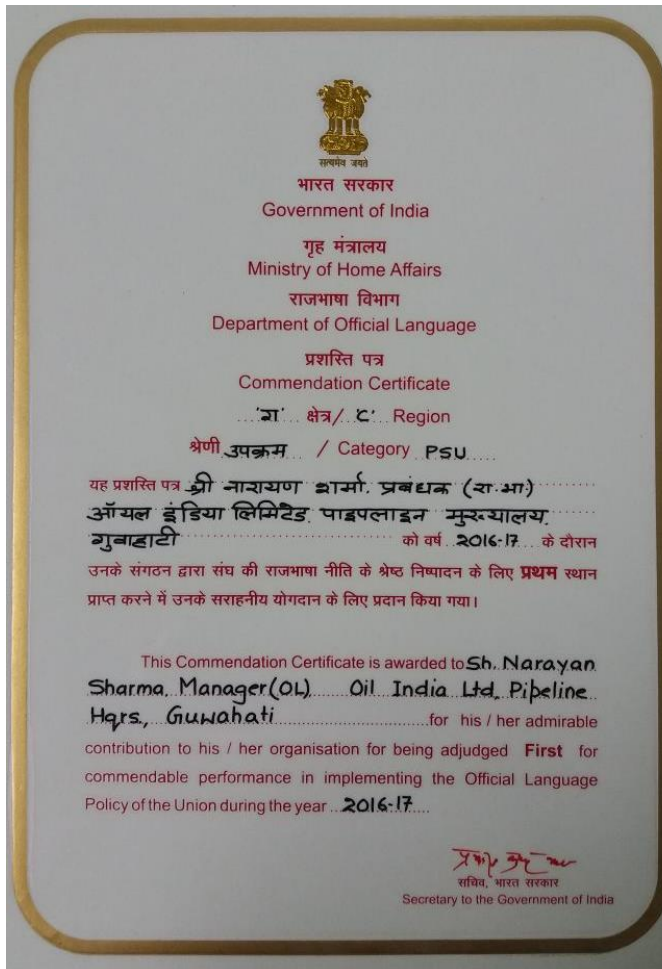 सत्यमेव जयते
भारत सरकार
Government of India
गृह मंत्रालय
Ministry of Home Affairs
राजभाषा विभाग
Department of Official Language
प्रशस्ति पत्र
Commendation Certificate
'ग' क्षेत्र/ 'C' Region
श्रेणी उपक्रम / Category PSU
यह प्रशस्ति पत्र श्री नारायण शर्मा. प्रबंधक (रा.भा.)
ऑयल इंडिया लिमिटेड. पाइपलाइन मुख्यालय.
गुवाहाटी को वर्ष 2016-17 के दौरान
उनके संगठन द्वारा संघ की राजभाषा नीति के श्रेष्ठ निष्पादन के लिए प्रथम स्थान
प्राप्त करने में उनके सराहनीय योगदान के लिए प्रदान किया गया।
This Commendation Certificate is awarded to Sh. Narayan
Sharma, Manager(OL) Oil India Ltd, Pipeline
Hqrs., Guwahati for his / her admirable
contribution to his / her organisation for being adjudged First for
commendable performance in implementing the Official Language
Policy of the Union during the year 2016-17
सचिव, भारत सरकार
Secretary to the Government of India